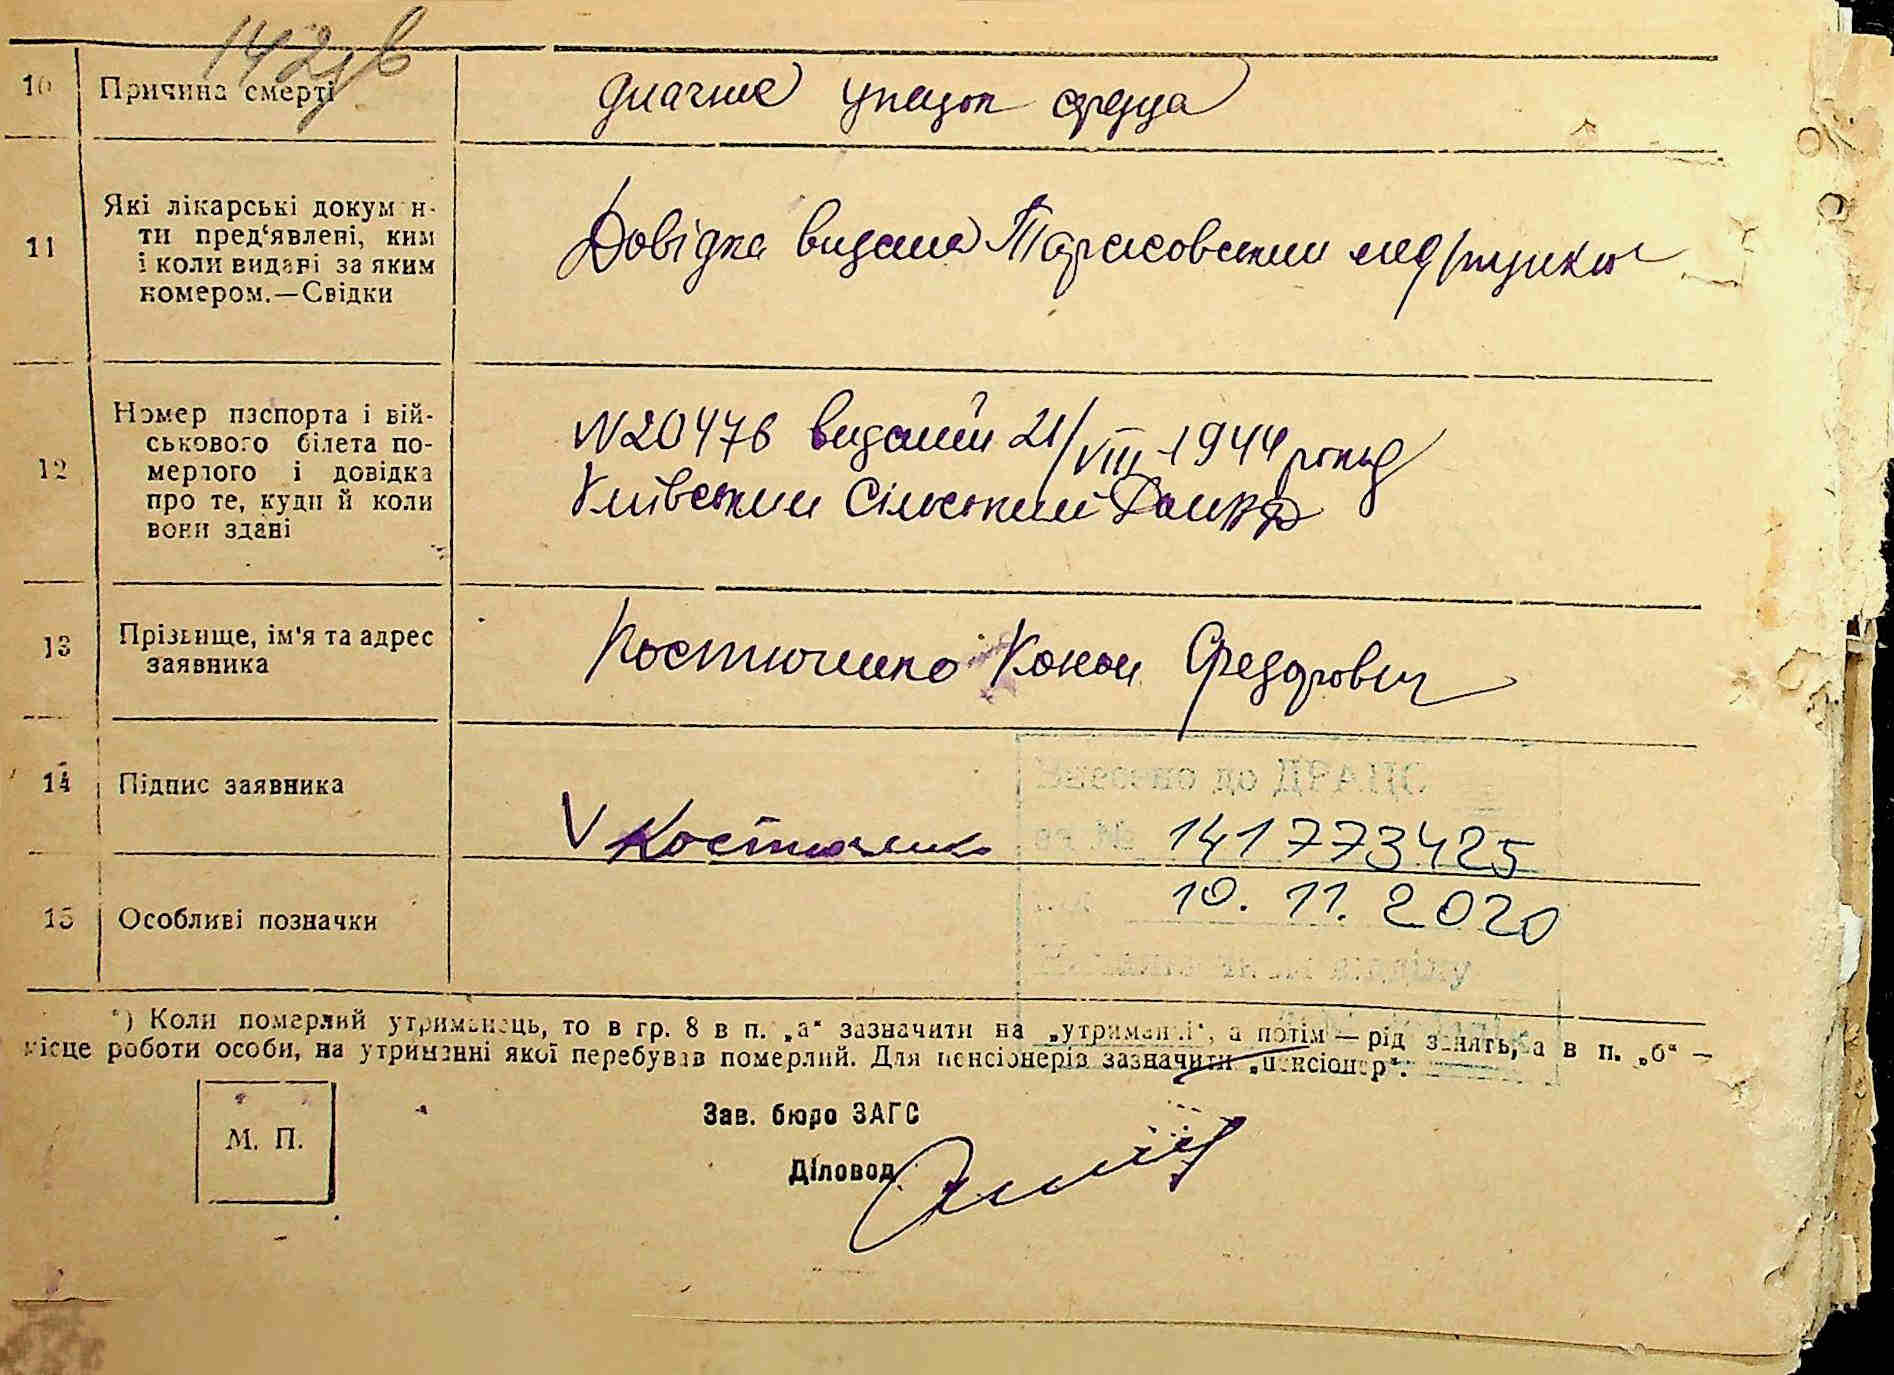 142зв
10 Причина смерті
упадок сердца
11 Які лікарські докумен-
ти пред'явлені, ким
і коли видані за яким
номером.—Свідки
Довідка видана Тарасовским медпунктом
12 Номер паспорта і вій-
ськового білета по-
мерлого і довідка
про те, куди й коли
вони здані
N20476 виданий 21/VIII-1944 року
Київским Сільским
13 Прізвище, ім'я та адрес
заявника
Костюченко Конон Федорович
14 Підпис заявника
V Костюченко
Внесено до ДРАЦС
за № 141773425
10.11.2020
15 Особливі позначки
*) Коли померлий утриманець, то в гр. 8 в п. „а“ зазначити на „утриманні“, а потім — рід занять, а в п. „б“ —
місце роботи особи, на утриманні якої перебував померлий. Для пенсіонерів зазначити „пенсіонер“.
М. П.
Зав. бюро ЗАГС
Діловод